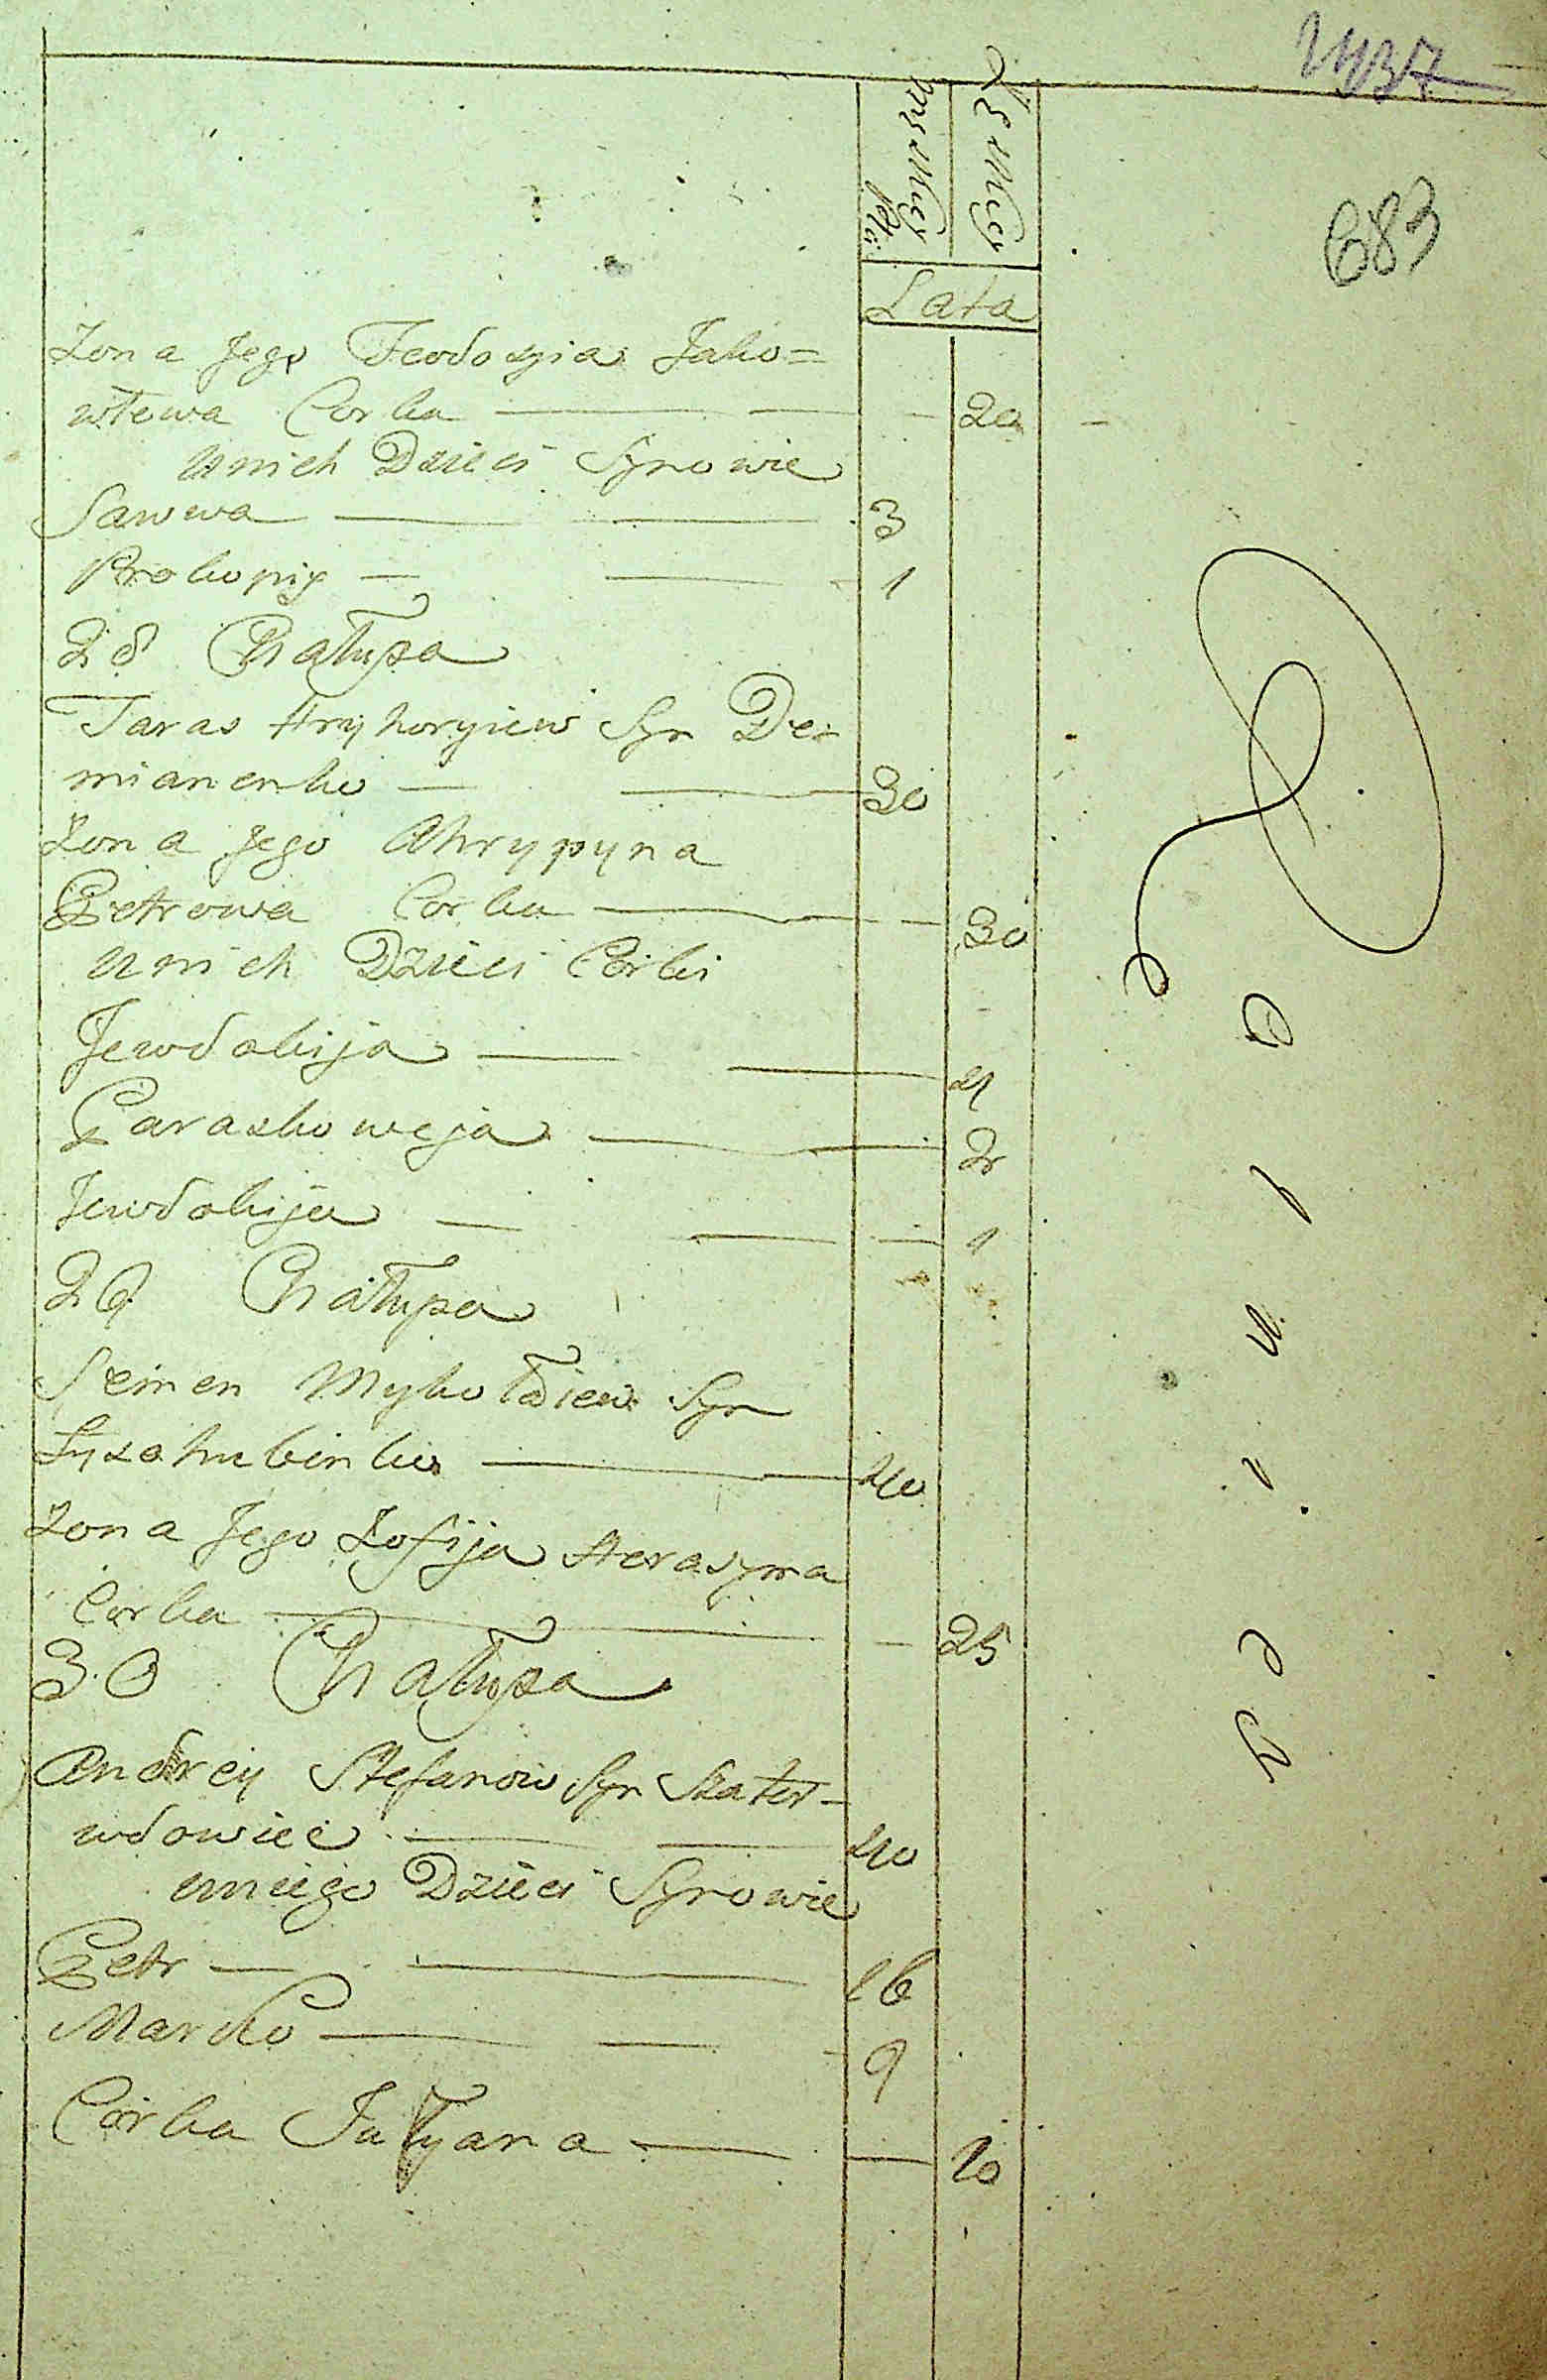 2437
683
Męskiey płci
Żeńskiey
Lata
Zona Jego Teodozyia Jako=
włewa Corka — — — 20 —
unich Dzieci Synowie
Sawwa — — 3
Prokopiy — — 1
28 Chałupa
Taras Hryhoryiew Syn De-
mianenko — — 30
Zona Jego Ahrypyna
Petrowa Corka — — 30
unich Dzieci Córki
Jewdokija — — 4
Paraskoweja — — 2
Jewdokija — — — 1
29 Chałupa
Semen Mykołaiew Syn
— — 40
Zona Jego Zofija Herasyma
Corka — — 25
30 Chałupa
Andrey Stefanow Syn
wdowiec — — 40
uniego Dzieci Synowie
Petr — — 16
Marko — — 9
Córka Tatyana — — 10